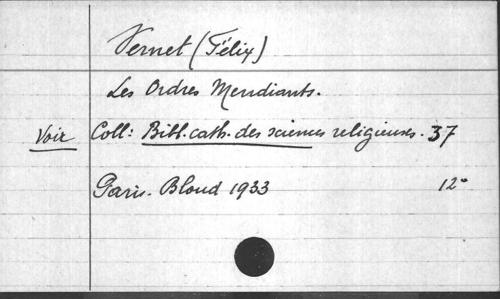 Vernet (Félix)
Les Ordres Mendiants.
Voir Coll: Bibl. cath. des sciences religieuses. 37
Paris. Bloud 1933 12°